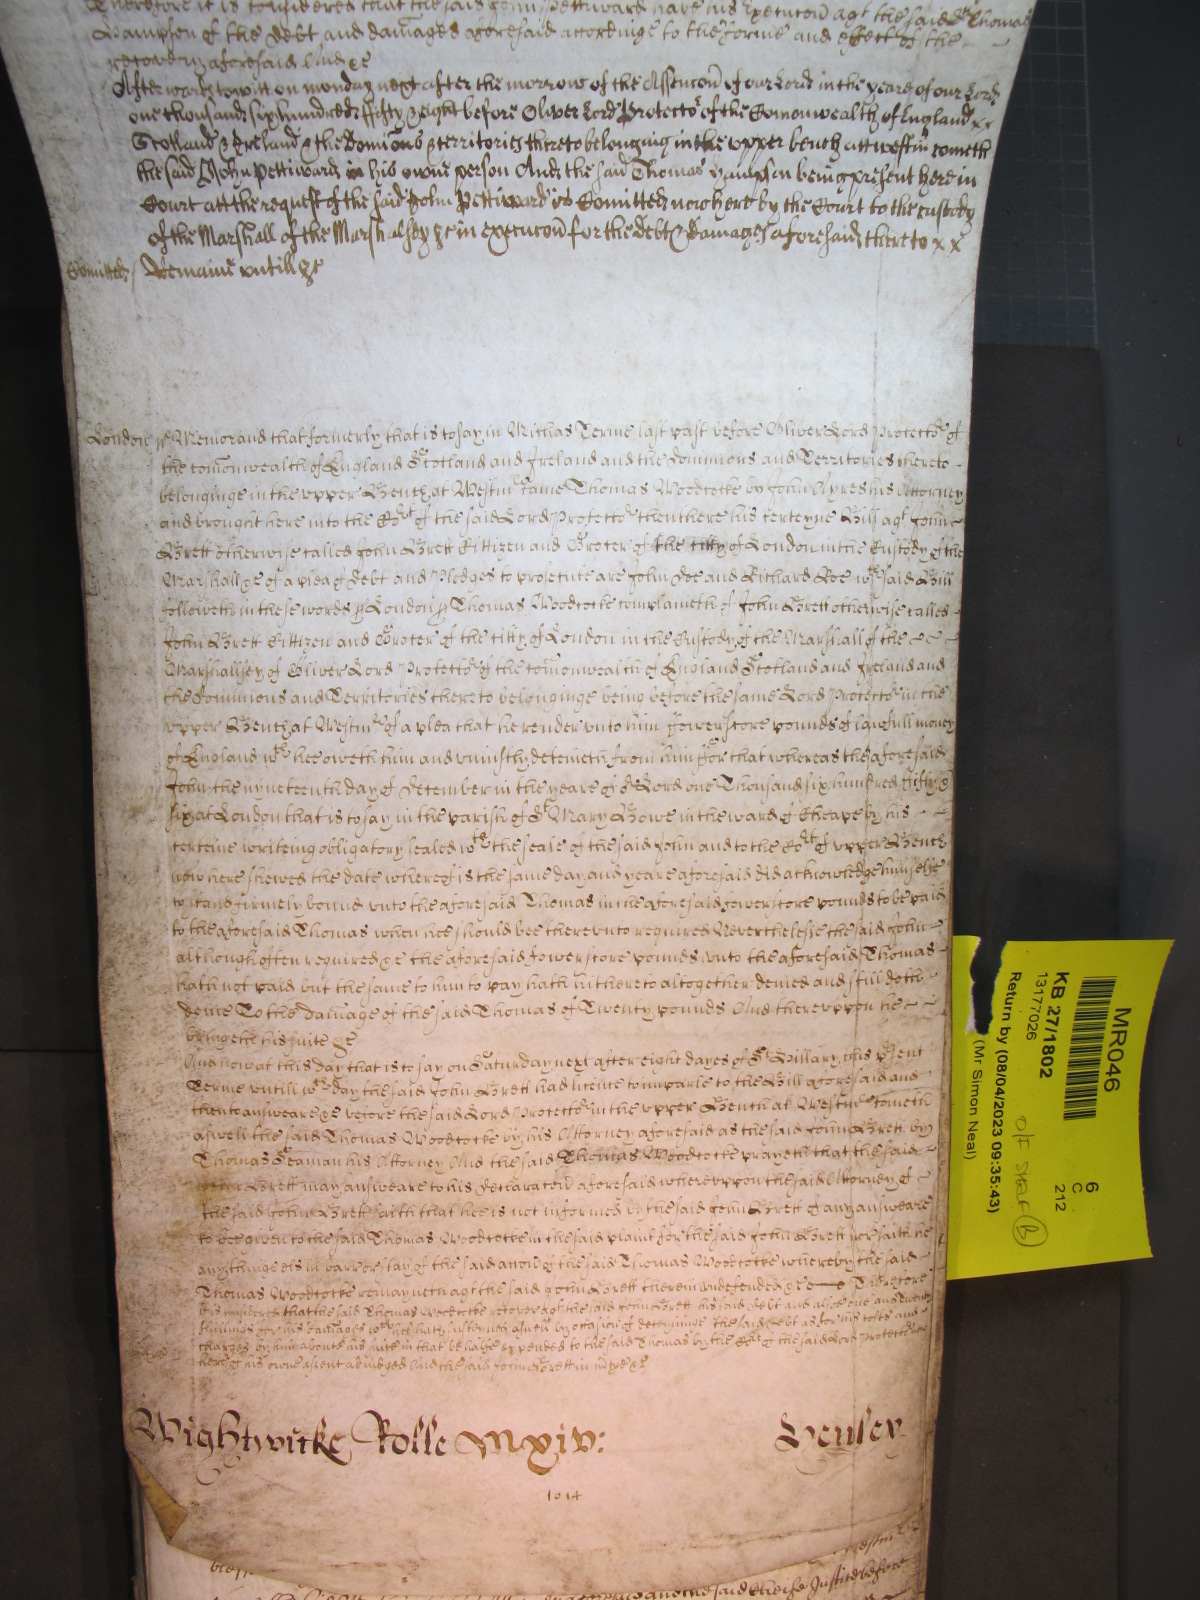 Therefore it is considered that the said John Pettiward have his Execucon agt the said Thomas
Sampson of the Debt and damages aforesaid accordinge to the forme and effect of the
recovery aforesaid And &c
Afterwards to witt on monday next after the morrow of the Assencon of our Lord in the yeare of our Lord
one thousand six hundred fifty & eight before Oliver Lord Protector of the Comonwealth of England
Scotland & Ireland & the Dominions & territories thereto belonging in the upper bench att westmr cometh
the said John Pettiward in his owne person And the said Thomas Sampson being present here in
Court att the request of the said John Pettiward is Comitted now here by the Court to the custody
of the Marshall of the Marshalsey &c in execucon for the debt & damages aforesaid there to x x
Comitted / Remaine untill &c
London ss Memorand that formerly that is to say in Michas Terme last past before Oliver Lord Protector of
the comonwealth of England Scotland and Ireland and the Dominions and Territories thereto
belonginge in the upper Bench at Westmr came Thomas Woodcocke by John Ayres his Attorney
and brought here into the Cort of the said Lord Protector then there his certeyne Bill agt John
Brett otherwise called John Brett Cittizen and Grocer of the citty of London in the Custody of the
Marshall &c of a plea of Debt and Pledges to prosecute are John Doe and Richard Roe wch said Bill
followeth in these words ss London ss Thomas Woodcocke complaineth of John Brett otherwise called
John Brett Cittizen and Grocer of the citty of London in the Custody of the Marshall of the
Marshallsey of Oliver Lord Protector of the comonwealth of England Scotland and Ireland and
the Dominions and Territories thereto belonginge being before the same Lord Protector in the
upper Bench at Westmr of a plea that he render unto him fowerscore pounds of lawfull money
of England wch hee oweth him and uniustly deteineth from him For that whereas the aforesaid
John the nyneteenth day of December in the yeare of or Lord one Thousand six hundred fifty &
six at London that is to say in the parish of St Mary Bowe in the ward of Cheape by his
certeine writeing obligatory sealed wth the seale of the said John and to the Cort of upper Bench
now here shewed the date whereof is the same day and yeare aforesaid did acknowledge himselfe
to stand firmely bound unto the aforesaid Thomas in the aforesaid fowerscore pounds to be paid
to the aforesaid Thomas when hee should bee thereunto required Neverthelesse the said John
although often required &c the aforesaid fowerscore pounds unto the aforesaid Thomas
hath not paid but the same to him to pay hath hitherto altogether denied and still doth
denie To the damage of the said Thomas of Twenty pounds And thereuppon he
bringeth his suite &c
And now at this day that is to say on Saturday next after eight dayes of St Hillary this psent
Terme untill wch day the said John Brett had licence to imparle to the Bill aforesaid and
then to answeare &c before the said Lord Protector in the upper Bench at Westmr cometh
aswell the said Thomas Woodcocke by his Attorney aforesaid as the said John Brett by
Thomas Seaman his Attorney And the said Thomas Woodcocke prayeth that the said
John Brett may answeare to his declaracon aforesaid whereuppon the said Attorney of
the said John Brett saith that hee is not informed by the said John Brett of any answeare
to bee given to the said Thomas Woodcocke in the said plaint for the said John Brett nor saith he
any thinge els in barr or stay of the said accon of the said Thomas Woodcocke whereby the said
Thomas Woodcocke remayneth agt the said John Brett therein undefended &c Therefore
it is considered that the said Thomas Woodcocke recover agt the said John Brett his said debt and alsoe one and twenty
shillings for his damages wch hee hath susteyned aswell by occasion of deteininge the said debt as for his costs and
charges by him aboute his suite in that behalfe expended to the said Thomas by the Cort of the said Lord Protector now
here of his owne assent adiudged And the said John Brett in mcy &c
Wightwicke Rolle Mxiv: Henley
1014
MR046
KB 27/1802
13177026
6
C
212
Return by (08/04/2023 09:35:43)
(Mr Simon Neal)
said Cheife Justice before